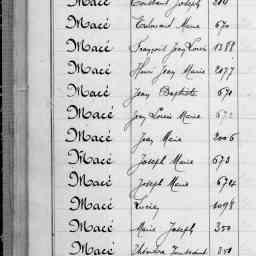 Macé Constant Joseph 200
Macé Edouard Marie 670
Macé François Jean Louis 1388
Macé Henri Jean Marie 2077
Macé Jean Baptiste 670
Macé Jean Louis Marie 672
Macé Jean Marie 2006
Macé Joseph Marie 673
Macé Joseph Marie 674
Macé Lucien 1098
Macé Marie Joseph 350
Macé Théodore Toussaint 350